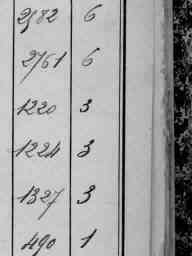 2582 6
2761 6
1220 3
1224 3
1327 3
490 1